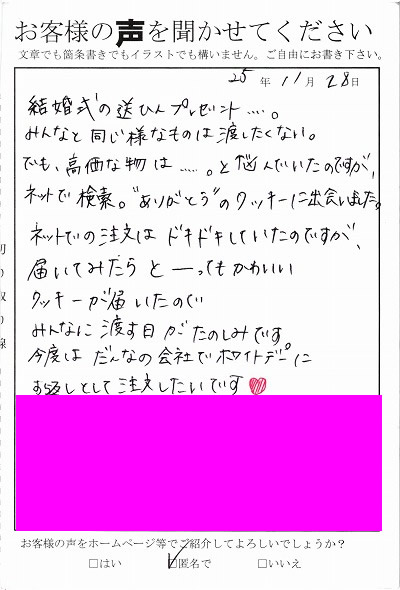 お客様の声を聞かせてください
文章でも箇条書きでもイラストでも構いません。ご自由にお書き下さい。
25年11月28日
結婚式の送ひんプレゼント……。
みんなと同じ様なものは渡したくない。
でも、高価な物は……。と悩んでいたのですが、
ネットで検索。"ありがとう"のクッキーに出会いました。
ネットでの注文はドキドキしていたのですが、
届いてみたらと――ってもかわいい
クッキーが届いたので
みんなに渡す日がたのしみです
今度はだんなの会社でホワイトデーに
お返しとして注文したいです
切り取り線
お客様の声をホームページ等でご紹介してよろしいでしょうか?
□はい □匿名で □いいえ